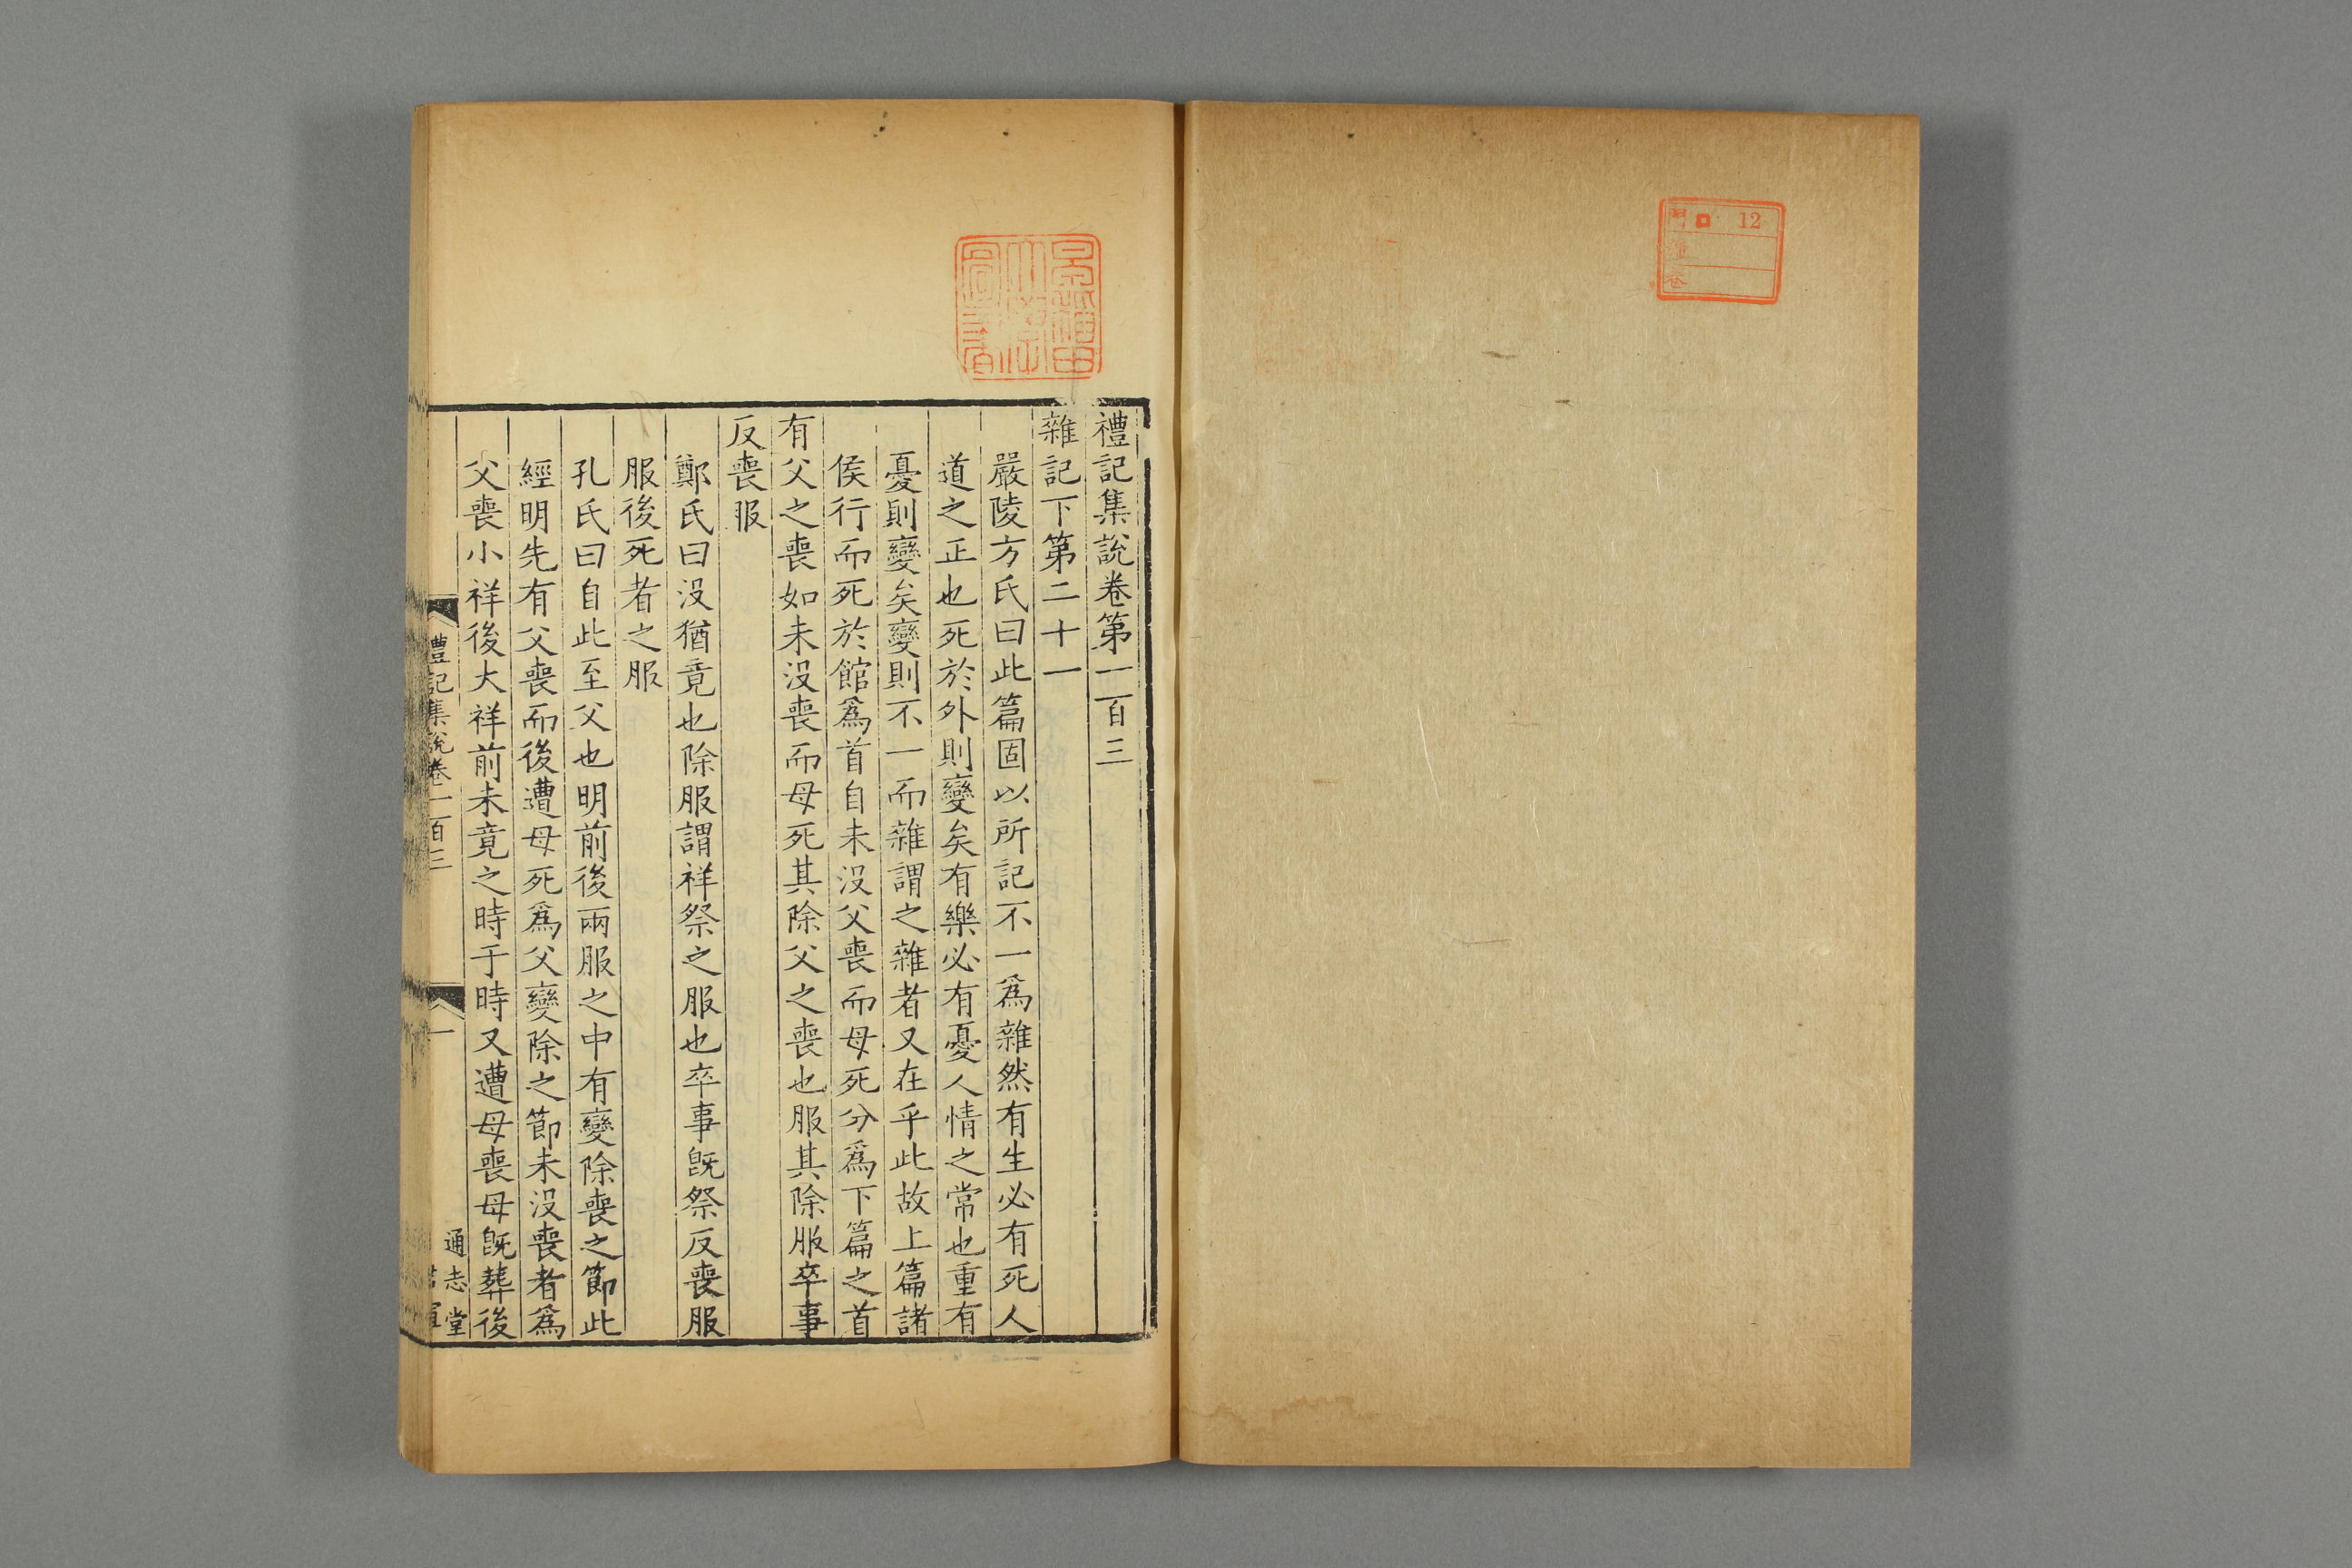 門 12
禮記集說卷第一百三
雜記下第二十一
嚴陵方氏曰此篇固以所記不一爲雜然有生必有死人
道之正也死於外則變矣有樂必有憂人情之常也重有
憂則變矣變則不一而雜謂之雜者又在乎此故上篇諸
侯行而死於館爲首自未沒父喪而母死分爲下篇之首
有父之喪如未沒喪而母死其除父之喪也服其除服卒事
反喪服
鄭氏曰沒猶竟也除服謂祥祭之服也卒事旣祭反喪服
服後死者之服
孔氏曰自此至父也明前後兩服之中有變除喪之節此
經明先有父喪而後遭母死爲父變除之節未沒喪者爲
父喪小祥後大祥前未竟之時于時又遭母喪母旣葬後
禮記集說卷一百三
一
通志堂